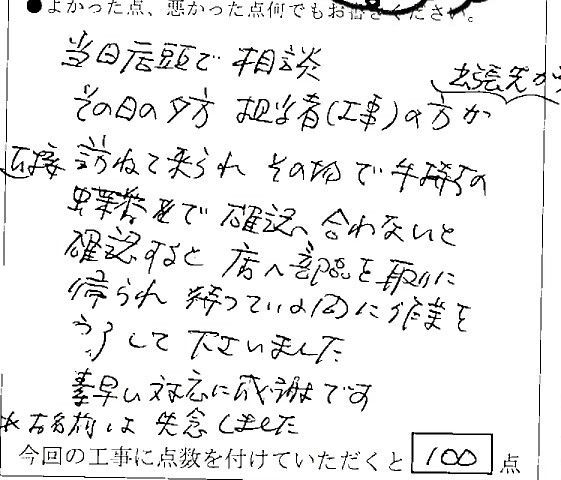 ●よかった点、悪かった点何でもお書きください。
当日店頭で相談
出張先から
その日の夕方 担当者(工事)の方が
直接訪ねて来られ その場で手持ちの
確認へ 合わないと
確認すると 店へ部品を取りに
帰られ 待っている間に作業を
して下さいました
素早い対応に感謝です
※お名前は 失念しました
今回の工事に点数を付けていただくと 100 点